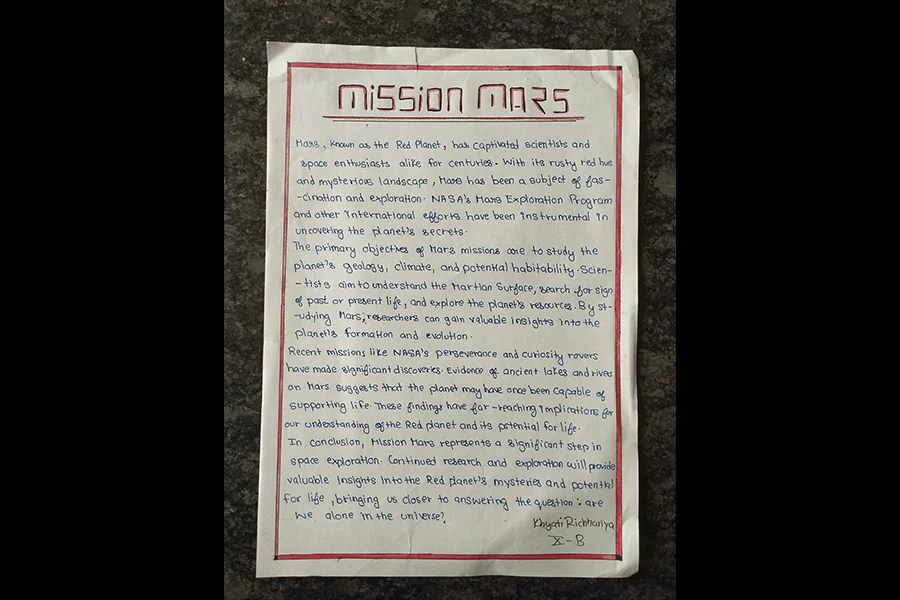 MISSION MARS
Mars, known as the Red Planet, has captivated scientists and
space enthusiasts alike for centuries. With its rusty red hue
and mysterious landscape, Mars has been a subject of fas-
-cination and exploration. NASA's Mars Exploration Program
and other International efforts have been instrumental in
uncovering the planet's secrets.
The primary objectives of Mars missions are to study the
planet's geology, climate, and potential habitability. Scien-
-tists aim to understand the Martian Surface, search for sign
of past or present life, and explore the planet's resources. By st-
-udying Mars, researchers can gain valuable insights into the
planet's formation and evolution.
Recent missions like NASA's perseverance and curiosity rovers
have made significant discoveries. Evidence of ancient lakes and rives
on Mars suggests that the planet may have once been capable of
supporting life. These findings have far-reaching implications for
our understanding of the Red planet and its potential for life.
In conclusion, Mission Mars represents a significant step in
space exploration. Continued research and exploration will provide
valuable insights into the Red planet's mysteries and potential
for life, bringing us closer to answering the question: are
we alone in the universe?
Khyati Richhariya
X-B